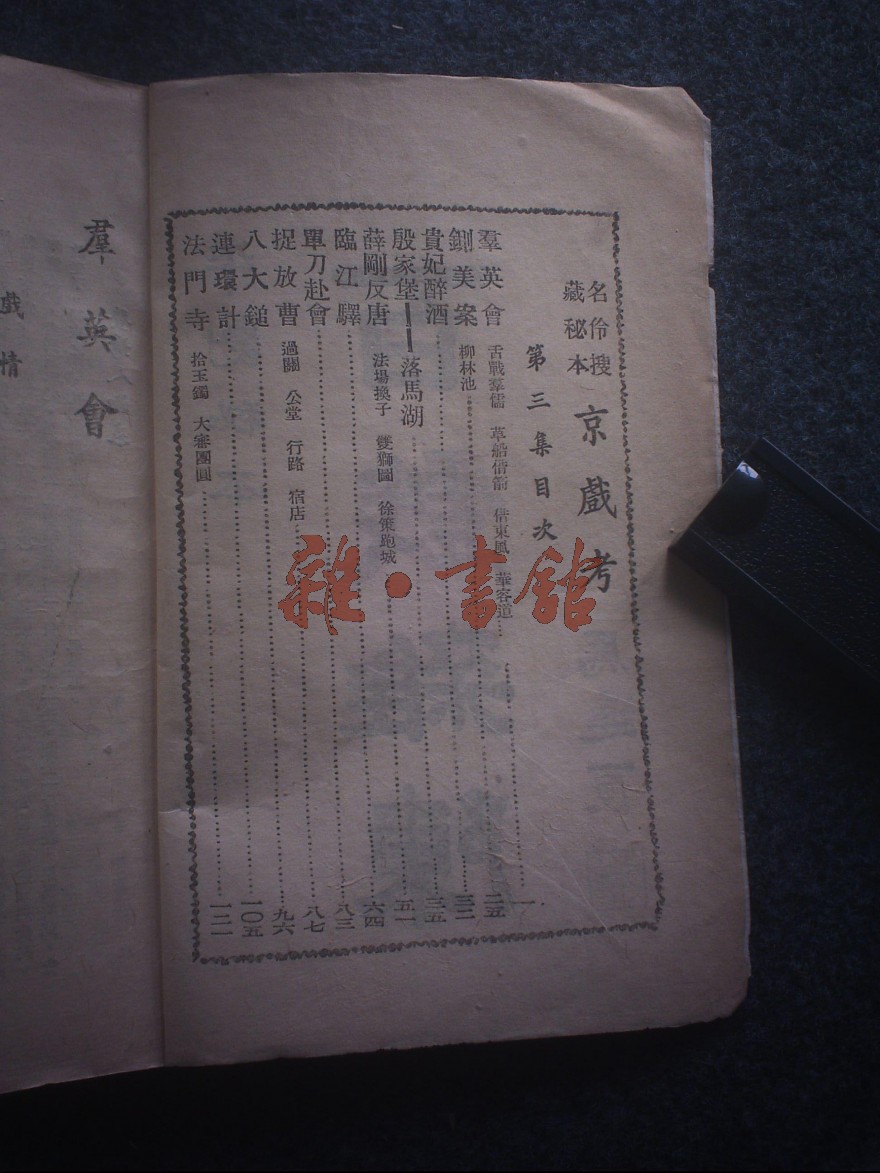 名伶搜
藏秘本
京戲考
第三集目次
羣英會 舌戰羣儒 草船借箭 借東風 華容道……一
鍘美案 柳林池……二五
貴妃醉酒……三二
殷家堡——落馬湖……三五
薛剛反唐 法場換子 雙獅圖 徐策跑城……五一
臨江驛……六四
單刀赴會……八三
捉放曹 過關 公堂 行路 宿店……八七
八大鎚……九六
連環計……一〇五
法門寺 拾玉鐲 大審團圓……一二一
羣英會
戲情
雜·書館